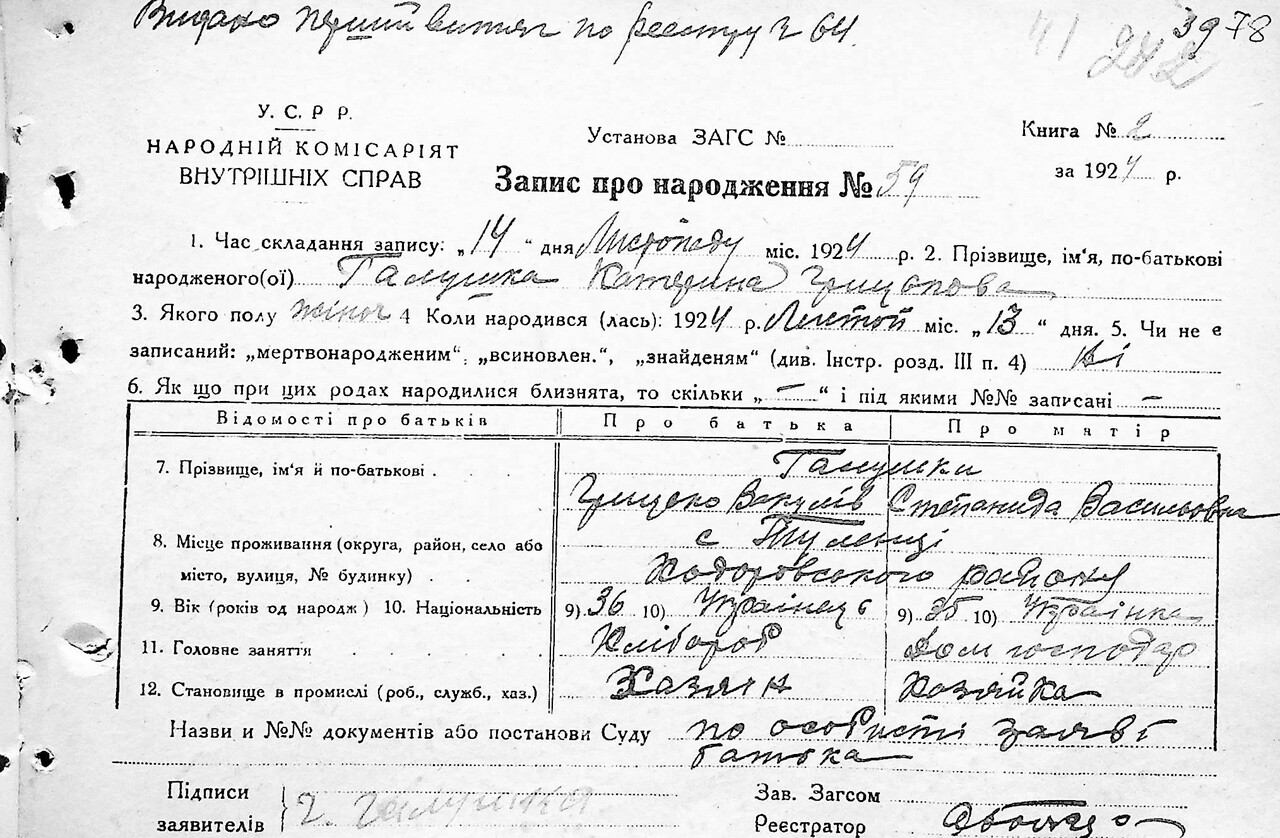 Видано перший витяг по реєстру з 64.
3978
41 242
У. С. Р Р.
НАРОДНІЙ КОМІСАРІЯТ
ВНУТРІШНІХ СПРАВ
Установа ЗАГС №
Книга № 2
за 1924 р.
Запис про народження № 59
1. Час складання запису: „14“ дня Листопаду міс. 1924 р. 2. Прізвище, ім'я, по-батькові
народженого(ої) Галушка Катерина Грицькова
3. Якого полу жіноч 4 Коли народився (лась): 1924 р. Листоп міс. „13“ дня. 5. Чи не є
записаний: „мертвонародженим“, „всиновлен.“, „знайденям“ (див. Інстр. розд. III п. 4) Ні
6. Як що при цих родах народилися близнята, то скільки „—“ і під якими №№ записані —
Відомості про батьків Про батька Про матір
7. Прізвище, ім'я й по-батькові . Галушки
Грицько Вакулів Степанида Васильовна
8. Місце проживання (округа, район, село або с Туленці
місто, вулиця, № будинку) . . Ходоровського району
9. Вік (років од народж) 10. Національність 9) 36 10) Українець 9) 35 10) Українка
11. Головне заняття Хлібороб Дом господар
12. Становище в промислі (роб., служб., хаз.) Хазяїн Хозяйка
Назви и №№ документів або постанови Суду по особисті заяві
батька
Підписи
заявителів Г. Галушка
Зав. Загсом
Реєстратор